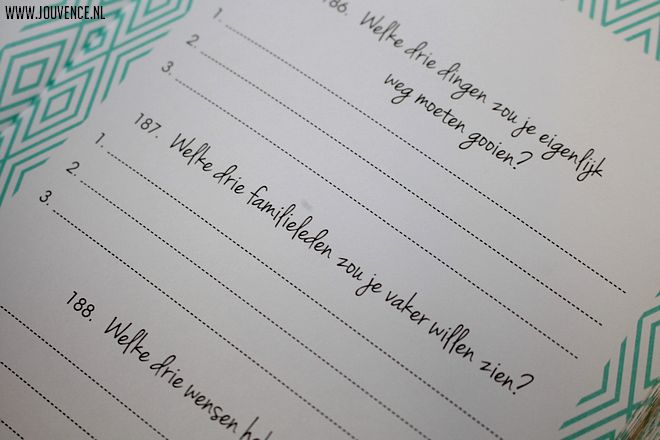 WWW.JOUVENCE.NL
186. Welke drie dingen zou je eigenlijk
weg moeten gooien?
1.
2.
3.
187. Welke drie familieleden zou je vaker willen zien?
1.
2.
3.
188. Welke drie wensen